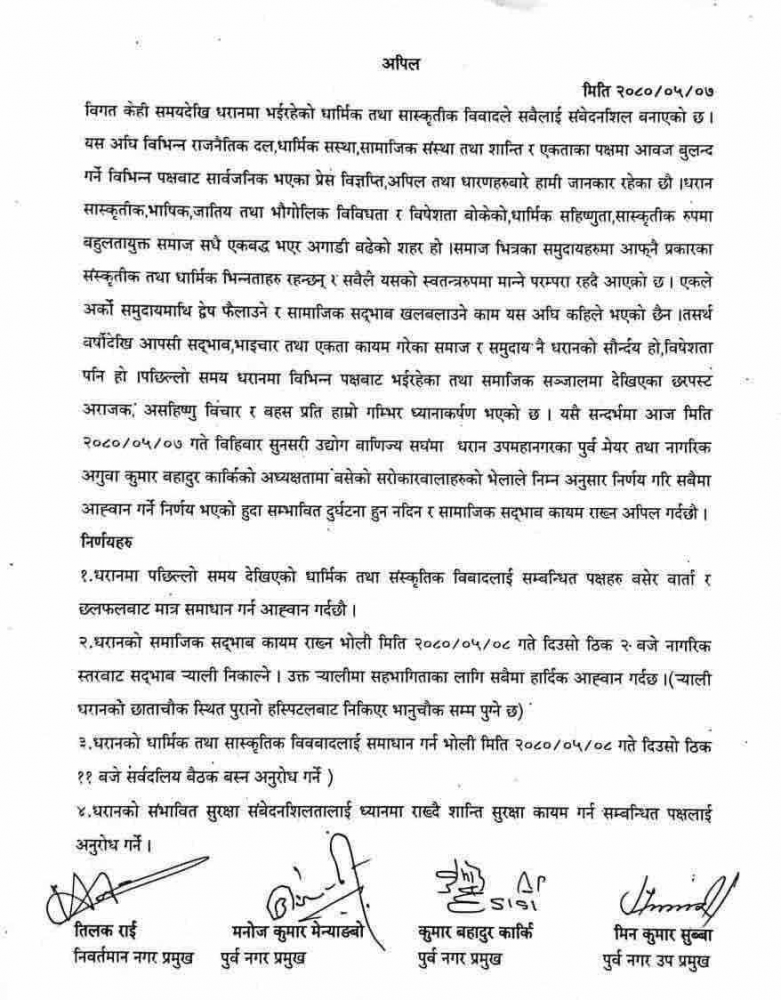 अपिल
मिति २०८०/०५/०७
विगत केही समयदेखि धरानमा भईरहेको धार्मिक तथा सास्कृतीक विवादले सवैलाई संबेदनशिल बनाएको छ ।
यस अघि विभिन्न राजनैतिक दल,धार्मिक सस्था,सामाजिक संस्था तथा शान्ति र एकताका पक्षमा आवज बुलन्द
गर्ने विभिन्न पक्षवाट सार्वजनिक भएका प्रेस विज्ञप्ति,अपिल तथा धारणहरुबारे हामी जानकार रहेका छौ ।धरान
सास्कृतीक,भाषिक,जातिय तथा भौगोलिक विविधता र विषेशता बोकेको,धार्मिक सहिष्णुता,सास्कृतीक रुपमा
बहुलतायुक्त समाज सधै एकबद्ध भएर अगाडी बढेको शहर हो ।समाज भित्रका समुदायहरुमा आफ्नै प्रकारका
संस्कृतीक तथा धार्मिक भिन्नताहरु रहन्छन् र सवैले यसको स्वतन्त्ररुपमा मान्ने परम्परा रहदै आएको छ । एकले
अर्को समुदायमाथि द्वेष फैलाउने र सामाजिक सद्भाव खलबलाउने काम यस अघि कहिले भएको छैन ।तसर्थ
वर्षौदेखि आपसी सद्भाव,भाइचार तथा एकता कायम गरेका समाज र समुदाय नै धरानको सौर्न्दय हो,विषेशता
पनि हो ।पछिल्लो समय धरानमा विभिन्न पक्षबाट भईरहेका तथा समाजिक सञ्जालमा देखिएका छरपस्ट
अराजक, असहिष्णु विचार र बहस प्रति हाम्रो गम्भिर ध्यानाकर्षण भएको छ । यसै सन्दर्भमा आज मिति
२०८०/०५/०७ गते विहिवार सुनसरी उद्योग वाणिज्य सघंमा धरान उपमहानगरका पुर्व मेयर तथा नागरिक
अगुवा कुमार बहादुर कार्किको अध्यक्षतामा बसेको सरोकारवालाहरुको भेलाले निम्न अनुसार निर्णय गरि सबैमा
आह्वान गर्ने निर्णय भएको हुदा सम्भावित दुर्घटना हुन नदिन र सामाजिक सद्भाव कायम राख्न अपिल गर्दछौ ।
निर्णयहरु
१.धरानमा पछिल्लो समय देखिएको धार्मिक तथा संस्कृतिक विबादलाई सम्बन्धित पक्षहरु बसेर वार्ता र
छलफलबाट मात्र समाधान गर्न आह्वान गर्दछौ ।
२.धरानको समाजिक सद्भाव कायम राख्न भोली मिति २०८०/०५/०८ गते दिउसो ठिक २ बजे नागरिक
स्तरबाट सद्भाव र्‍याली निकाल्ने । उक्त र्‍यालीमा सहभागिताका लागि सबैमा हार्दिक आह्वान गर्दछ ।(र्‍याली
धरानको छाताचौक स्थित पुरानो हस्पिटलबाट निकिएर भानुचौक सम्म पुग्ने छ)
३.धरानको धार्मिक तथा सास्कृतिक विवबादलाई समाधान गर्न भोली मिति २०८०/०५/०८ गते दिउसो ठिक
११ बजे सर्वदलिय बैठक बस्न अनुरोध गर्ने )
४.धरानको संभावित सुरक्षा संबेदनशिलतालाई ध्यानमा राख्दै शान्ति सुरक्षा कायम गर्न सम्बन्धित पक्षलाई
अनुरोध गर्ने ।
तिलक राई मनोज कुमार मेन्याङबो कुमार बहादुर कार्कि मिन कुमार सुब्बा
निवर्तमान नगर प्रमुख पुर्व नगर प्रमुख पुर्व नगर प्रमुख पुर्व नगर उप प्रमुख